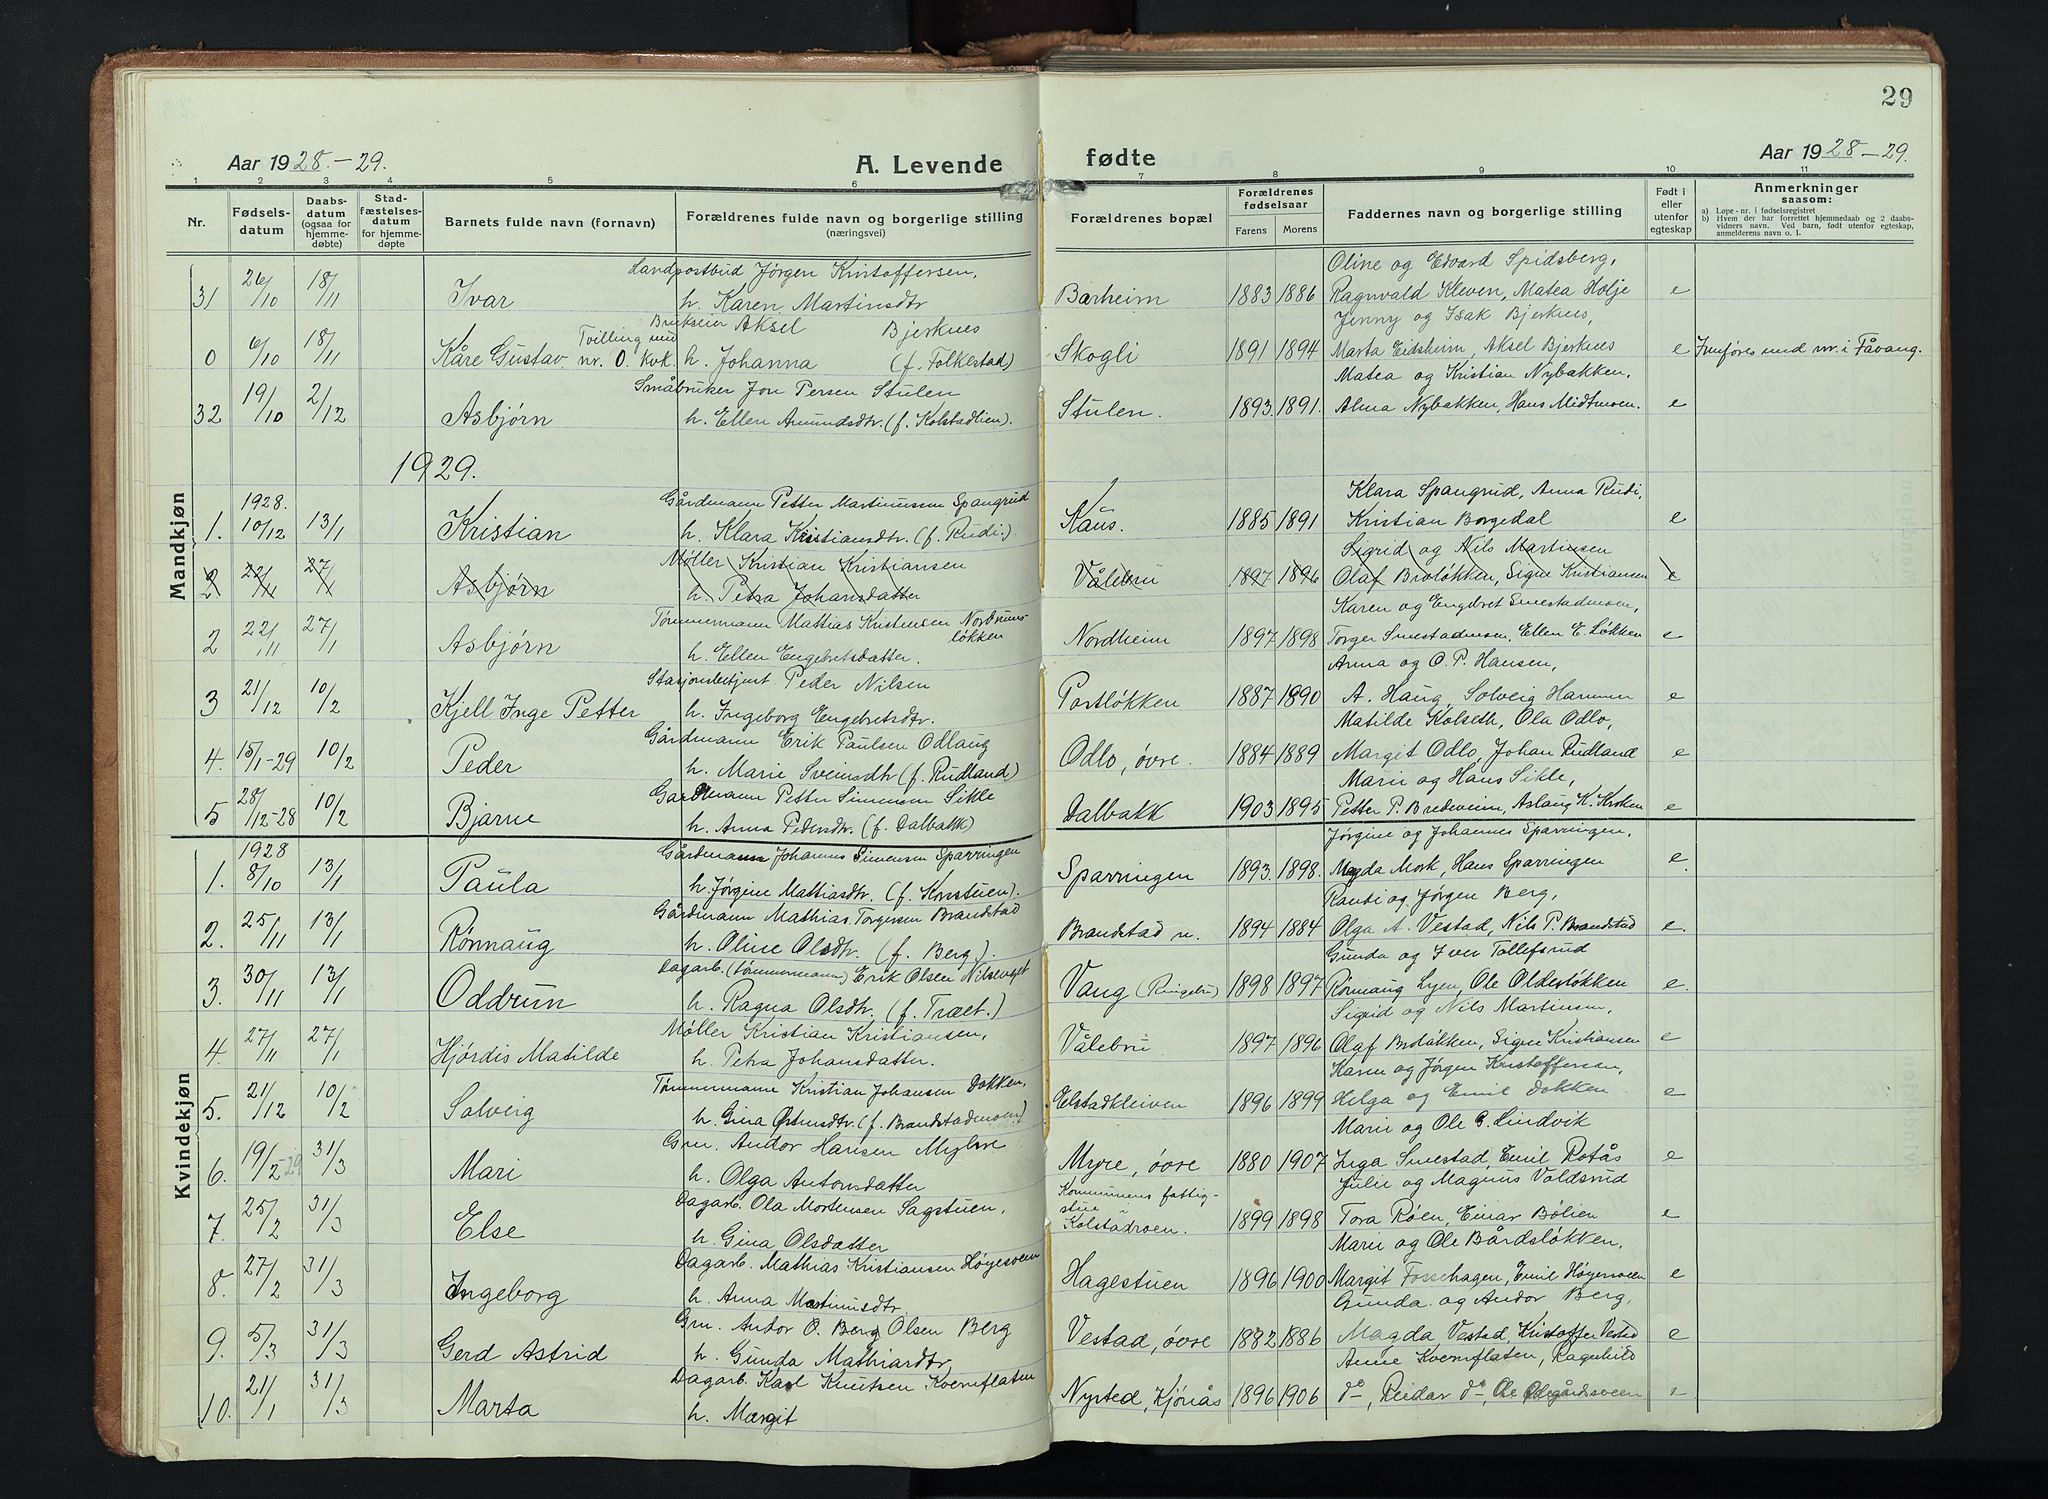 29
Aar 1928.-29.
A. Levende
fødte
Aar 1928-29.
1 2 3 4 5 6 7 8 9 10 11
Nr.
Fødsels-
datum
Daabs-
datum
(ogsaa for
hjemme-
døbte)
Stad-
fæstelses-
datum
for hjemme-
døpte
Barnets fulde navn (fornavn)
Forældrenes fulde navn og borgerlige stilling
(næringsvei)
Forældrenes bopæl
Forældrenes
fødselsaar
Farens Morens
Faddernes navn og borgerlige stilling
Født i
eller
utenfor
egteskap
Anmerkninger
saasom:
a) Løpe-nr. i fødselsregistret
b) Hvem der har forrettet hjemmedaab og 2 daabs-
vidners navn. Ved barn, født utenfor egteskap,
anmelderens navn o. l.
Landpostbud Jørgen Kristoffersen, Oline og Edvard Spidsberg,
31 26/10 18/11 Ivar h. Karen Martinsdtr Barheim 1883 1886 Ragnvald Kleven, Matea Holje e
Brukseier Aksel Bjerknes Jenny og Isak Bjerknes,
0 6/10 18/11 Kåre Gustav, Tvilling med nr. 0. kvk. h. Johanna (f. Folkestad) Skogli 1891 1894 Marta Eidsheim, Aksel Bjerknes e Innføres med nr. i Fåvang.
Småbruker Jon Persen Stulen Matea og Kristian Nybakken,
32 19/10 2/12 Asbjørn h. Ellen Amundsdtr. (f. Kolstadlien). Stulen. 1893. 1891. Alma Nybakken, Hans Midtmoen. e
1929.
Mandkjøn
1928. Gårdmann Petter Martinussen Spangrud Klara Spangrud, Anna Rudi,
1. 10/12 13/1 Kristian h. Klara Kristiansdtr. (f. Rudi.) Kaus. 1885 1891 Kristian Borgedal e
Møller Kristian Kristiansen Sigrid og Nils Martinsen
2 22/11 27/1 Asbjørn h. Petra Johansdatter Vålebru 1897 1896 Olaf Broløkken, Signe Kristiansen e
Tømmermann Mathias Kristensen Nordrums-
løkken Karen og Engebret Smestadmoen,
2 22/11 27/1 Asbjørn h. Ellen Engebretsdatter. Nordheim 1897 1898 Torger Smestadmoen, Ellen E. Løkken e
Stasjonsbetjent Peder Nilsen Anna og O. P. Hansen,
3 21/12 10/2 Kjell Inge Petter h. Ingeborg Engebretsdtr. Portløkken 1887 1890 A. Haug, Solveig Hammer e
Gårdmann Erik Paulsen Odlaug Matilde Kolseth, Ola Odlo,
4. 15/1-29 10/2 Peder h. Marie Sveinsdtr (f. Rudland) Odlo, øvre. 1884 1889 Margit Odlo, Johan Rudland e
Gardmann Petter Simensen Sikle Marie og Hans Sikle,
5 28/12-28 10/2 Bjarne h. Anna Pedersdtr. (f. Dalbakk) Dalbakk 1903 1895 Petter P. Bredeveim, Aslaug K. Kroken e
Kvindekjøn
1928 Gårdmann Johannes Simensen Sparringen Jørgine og Johannes Sparringen,
1. 8/10 13/1 Paula h. Jørgine Mathiasdtr. (f. Kornstuen). Sparringen 1893. 1898. Magda Mork, Hans Sparringen e.
Gårdmann Mathias Torgersen Brandstad Randi og Jørgen Berg,
2. 25/11 13/1 Rønnaug h. Oline Olsdtr. (f. Berg). Brandstad n. 1894 1884 Olga A. Vestad, Nils P. Brandstad e.
Dagarb. (tømmermann) Erik Olsen Gunda og Iver Tollefsrud
3. 30/11 13/1 Oddrun h. Ragna Olsdtr. (f. Træet.) Vang (Ringebu) 1898 1897 Rønnaug Lyen, Ole Oldesløkken e.
Møller Kristian Kristiansen, Sigrid og Nils Martinsen,
4. 27/11 27/1 Hjørdis Matilde h. Petra Johansdatter. Vålebru 1897 1896 Olaf Broløkken, Signe Kristiansen e
Tømmermann Kristian Johansen Dokken, Karen og Jørgen Kristoffersen,
5. 21/12 10/2 Solveig h. Gina Østensdtr. (f. Brandstadmoen) Elstadkleiven 1896 1899 Helga og Emil Dokken e
Grn. Andor Hansen Myhre Marie og Ole G. Lindvik
6. 19/2-29 31/3 Mari h. Olga Antonsdatter Myre, øvre 1880 1907 Inga Smestad, Emil Rotås e
Dagarb. Ola Mortensen Sagstuen, Kommunens fattig- Julie og Magnus Voldsrud
7. 25/2 31/3 Else h. Gina Olsdatter stue Kolstadroen. 1899 1898 Tora Røen, Einar Bølien e
Dagarb. Mathias Kristiansen Høyesveen Marie og Ole Bårdsløkken,
8. 27/2 31/3 Ingeborg h. Anna Martinusdtr. Hagestuen 1896 1900 Margit Fossehagen, Emil Høyesveen e
Grn. Andor O. Berg Olsen Berg Gunda og Andor Berg,
9. 5/3 31/3 Gerd Astrid h. Gunda Mathiasdtr, Vestad, øvre 1882 1886 Magda Vestad, Kristoffer Vestad e
Dagarb. Karl Knutsen Kvernflaten Anne Kvernflaten, Ragnhild
10. 21/1 31/3 Marta h. Margit Nysted, Kjønås 1896 1906 do, Reidar do, Ole Odegårdsveen e